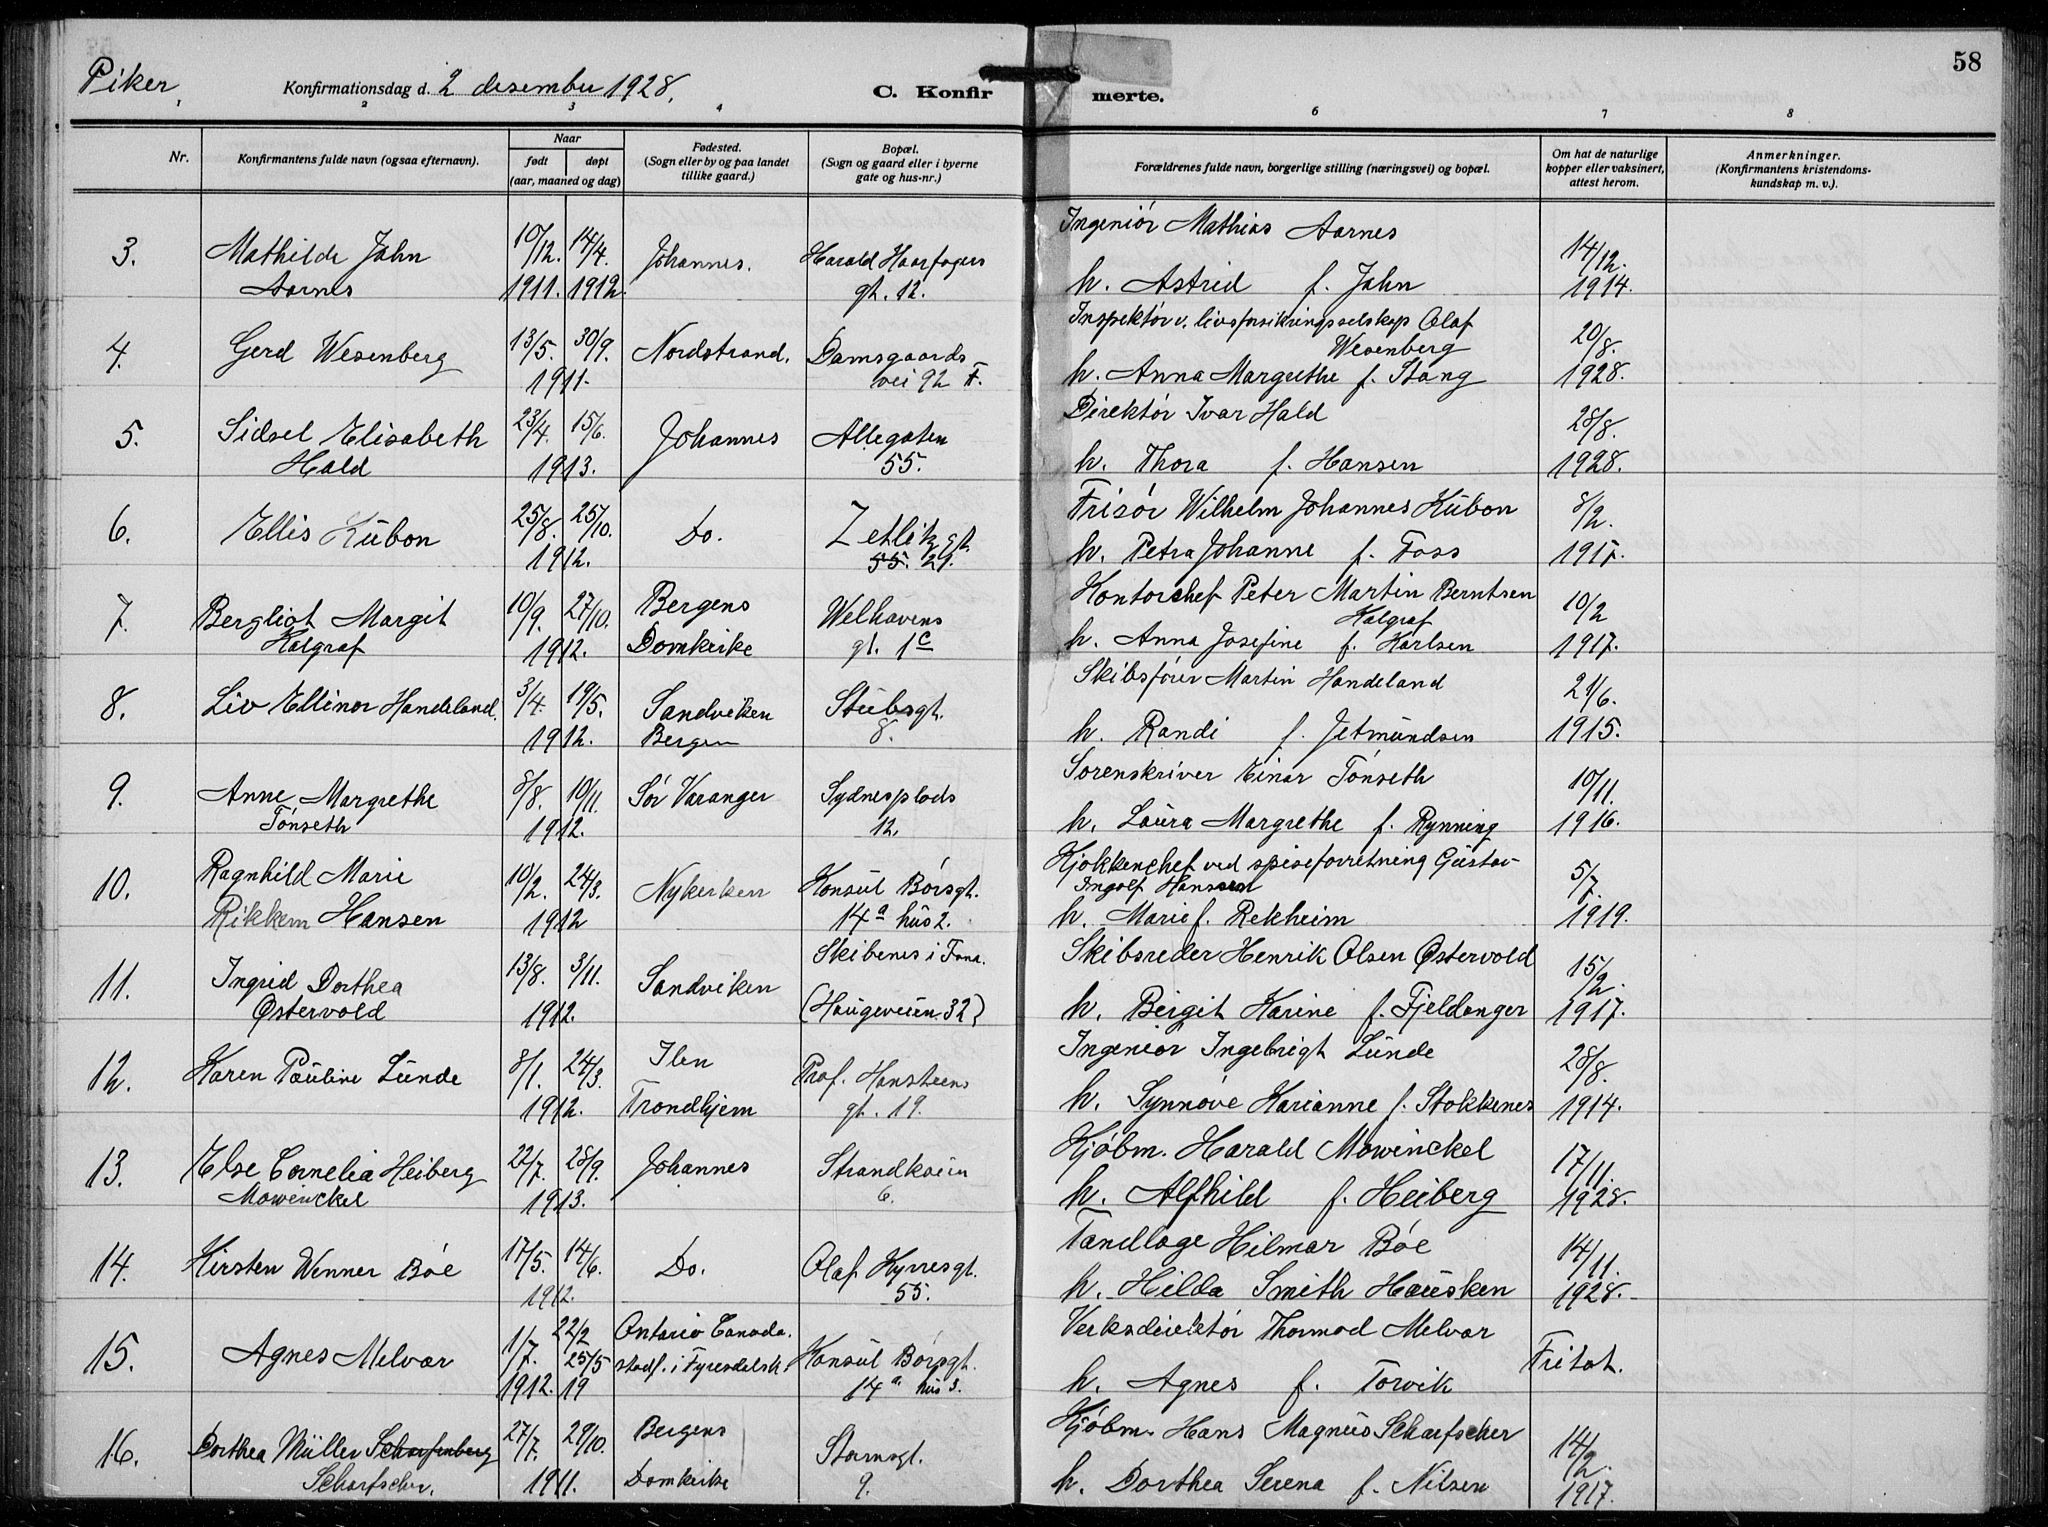 58
Piker,
Konfirmationsdag d. 2 desember 1928.
C. Konfirmerte.
2 3 4 6 7 8
Nr.
Konfirmantens fulde navn (ogsaa efternavn).
Naar
født døpt
(aar, maaned og dag)
Fødested.
(Sogn eller by og paa landet
tillike gaard.)
Bopæl.
(Sogn og gaard eller i byerne
gate og hus-nr.)
Forældrenes fulde navn, borgerlige stilling (næringsvei) og bopæl.
Om hat de naturlige
kopper eller vaksinert,
attest herom.
Anmerkninger.
(Konfirmantens kristendoms-
kundskap m. v.).
3. Mathilde Jahn 10/12. 14/4. Johannes. Harald Haarfagers Ingeniör Mathias Aarnes 14/12.
Aarnes 1911. 1912. gt. 12. h. Astrid f. Jahn 1914.
4. Gerd Wesenberg 13/5. 30/9. Nordstrand. Damsgaards Inspektör v. livsforsikringsselskap Olaf 20/8.
Wesenberg
1911. vei 92 F. h. Anna Margrethe f. Stang 1928.
5. Sidsel Elisabeth 23/4. 15/6. Johannes Allegaten Direktör Ivar Hald 28/8.
Hald 1913. 55. h. Thora f. Hansen 1928.
6. Ellis Kübon 25/8. 25/10. Do. Zetlitz gt. Frisör Wilhelm Johannes Kübon 8/2.
1912. 55. 21. h. Petra Johanne f. Foss 1917.
7. Bergliot Margit 10/9. 27/10. Bergens Welhavens Kontorchef Peter Martin Berntsen 10/2
Kalgraf
Kalgraf 1912. Domkirke gt. 1c h. Anna Josefine f. Karlsen 1917.
8. Liv Ellinor Handeland. 3/4. 19/5. Sandviken Stubsgt. Skibsförer Martin Handeland 21/6.
1912. Bergen 8. h. Randi f. Jetmundsen 1915.
9. Anne Margrethe 8/8. 10/11. Sör Varanger Sydnesplads Sorenskriver Einar Tönseth 10/11.
Tönseth 1912. 12. h. Laura Margrethe f. Rynning 1916.
10. Ragnhild Marie 10/2. 24/3. Nykirken Konsul Börsgt. Kjøkkenchef ved spiseforretning Gustav 5/7.
Ingolf Hanssen
Rikkem Hansen 1912 14a hus 2. h. Marie f. Rekheim 1919.
11. Ingrid Dorthea 13/8. 3/11. Sandviken Skibenes i Fana. Skibsreder Henrik Olsen Østervold 15/2.
Østervold 1912. (Haugeveien 32) h. Birgit Karine f. Fjeldanger 1917.
12. Karen Pauline Lunde 8/1. 24/3. Ilen Prof. Hansteens Ingeniör Ingebrigt Lunde 28/8.
1912. Trondhjem gt. 19. h. Synnöve Marianne f. Stokkenes 1914.
13. Else Cornelia Heiberg 22/7. 28/9. Johannes Strandkaien Kjöbm. Harald Mowinckel 17/11.
Mowinckel 1913. 6. h. Alfhild f. Heiberg 1928.
14. Kirsten Wenner Böe 17/5. 14/6. Do. Olaf Kyrresgt. Tandlæge Hilmar Böe 14/11.
1912. 55. h. Hilda Smith Hausken 1928.
15. Agnes Melvær 1/7. 22/2 Ontario Canada. Konsul Börsgt. Verksdirektör Thormod Melvær Fritat.
25/5 stadf. i Fyresdalsk.
1912. 19 14a hus 3. h. Agnes f. Torvik
16. Dorthea Müller Scharfenberg 27/7. 29/10. Bergens Stormsgt. Kjöbm. Hans Magnus Scharfscher 14/2.
Scharfscher. 1911. Domkirke 9. h. Dorthea Serena f. Nilsen 1917.